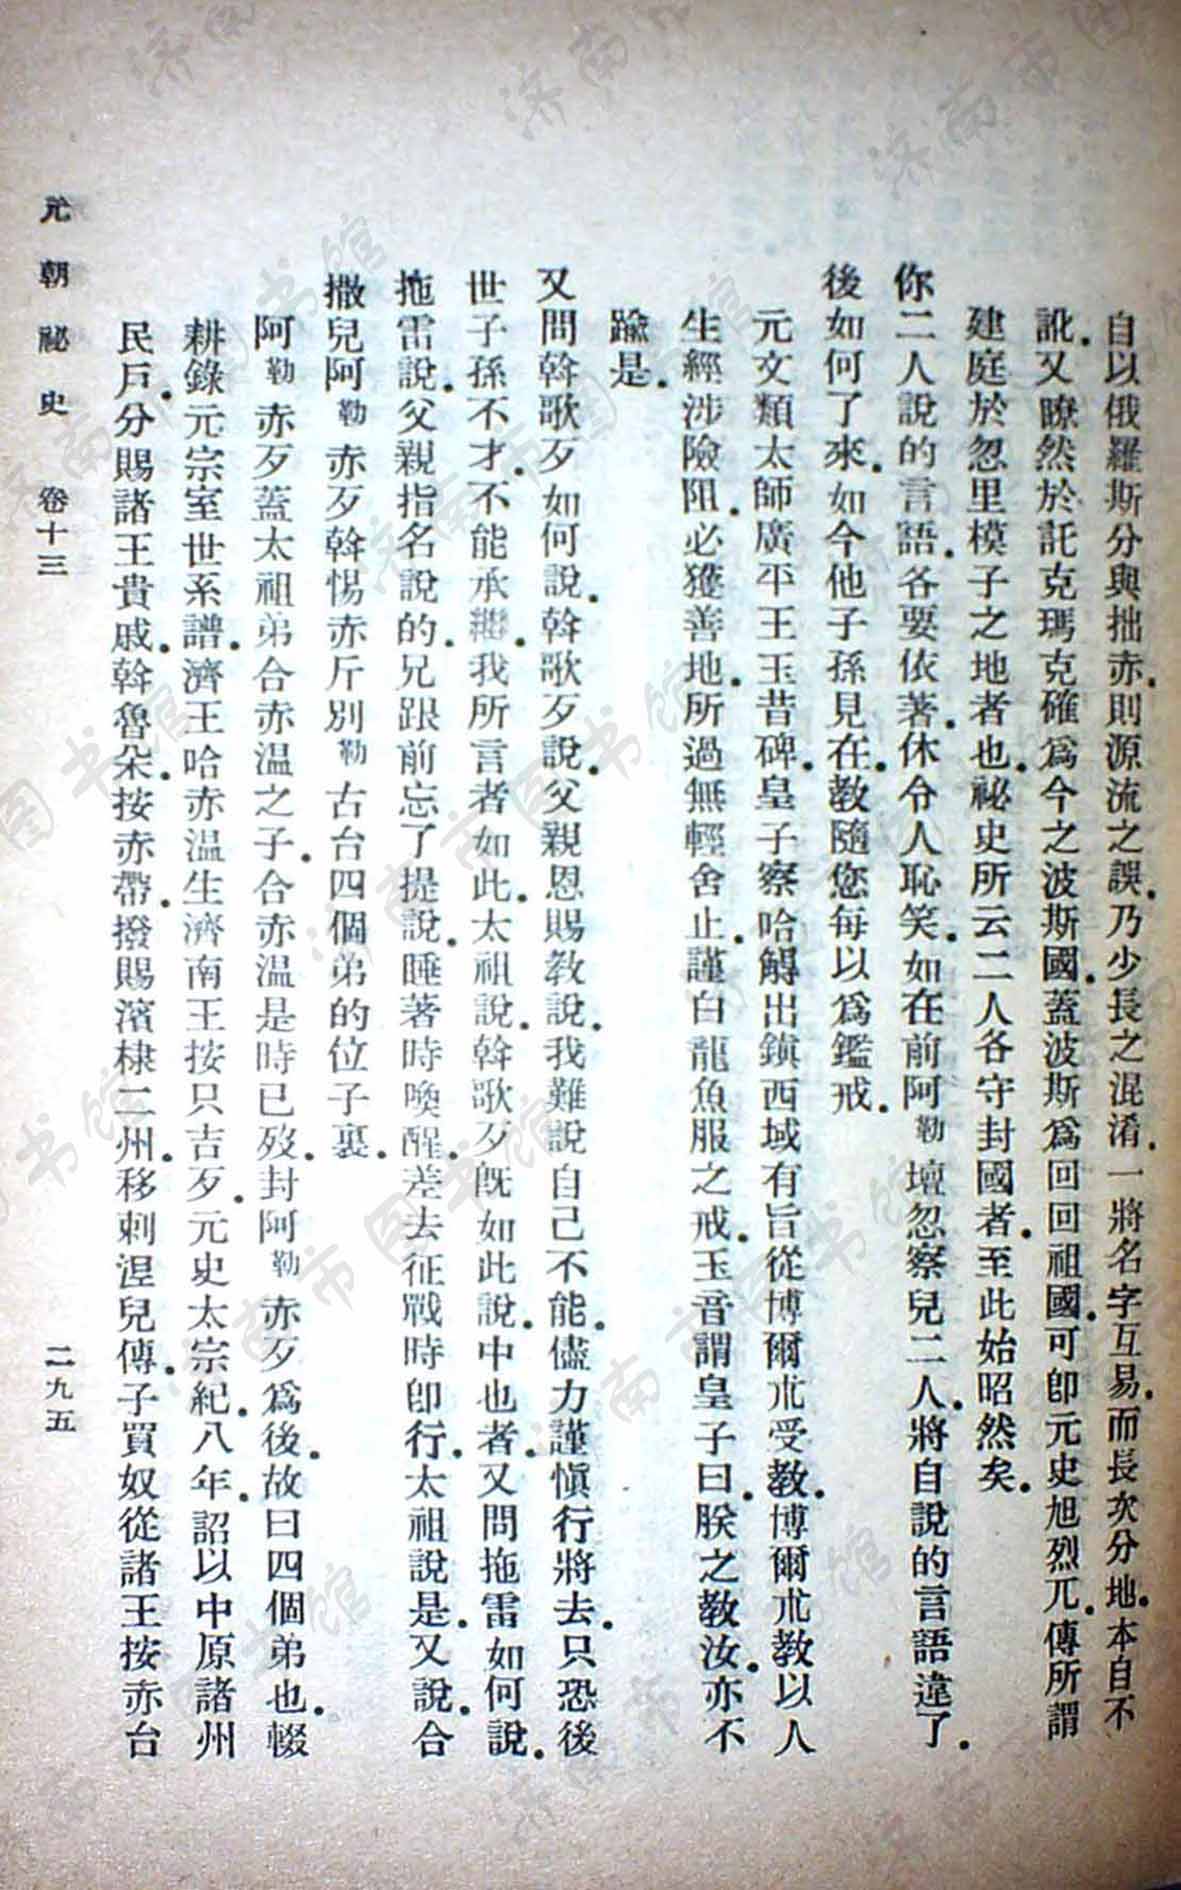 自以俄羅斯分與拙赤.則源流之誤.乃少長之混淆.一將名字互易.而長次分地.本自不
訛.又瞭然於託克瑪克確爲今之波斯國.蓋波斯爲回回祖國.可卽元史旭烈兀.傳所謂
建庭於忽里模子之地者也.祕史所云二人各守封國者.至此始昭然矣.
你二人說的言語.各要依著.休令人恥笑.如在前阿勒壇忽察兒二人.將自說的言語違了.
後如何了來.如今他子孫見在.教隨您每以爲鑑戒.
元文類太師廣平王玉昔碑.皇子察哈觴出鎭西域有旨從博爾朮受教.博爾朮教以人
生經涉險阻.必獲善地.所過無輕舍止.謹白龍魚服之戒.玉音謂皇子曰.朕之教汝.亦不
踰是.
又問斡歌歹如何說.斡歌歹說.父親恩賜教說.我難說自己不能.儘力謹愼行將去.只恐後
世子孫不才.不能承繼.我所言者如此.太祖說.斡歌歹旣如此說.中也者.又問拖雷如何說.
拖雷說.父親指名說的.兄跟前忘了提說.睡著時喚醒.差去征戰時卽行.太祖說是.又說.合
撒兒阿勒赤歹斡惕赤斤別勒古台四個弟的位子裏.
阿勒赤歹蓋太祖弟合赤温之子.合赤温是時已歿.封阿勒赤歹爲後.故曰四個弟也.輟
耕錄元宗室世系譜.濟王哈赤温生濟南王按只吉歹.元史太宗紀.八年.詔以中原諸州
民戶.分賜諸王貴戚.斡魯朵.按赤帶.撥賜濱棣二州.移剌湼兒傳.子買奴從諸王按赤台
元朝祕史 卷十三 二九五